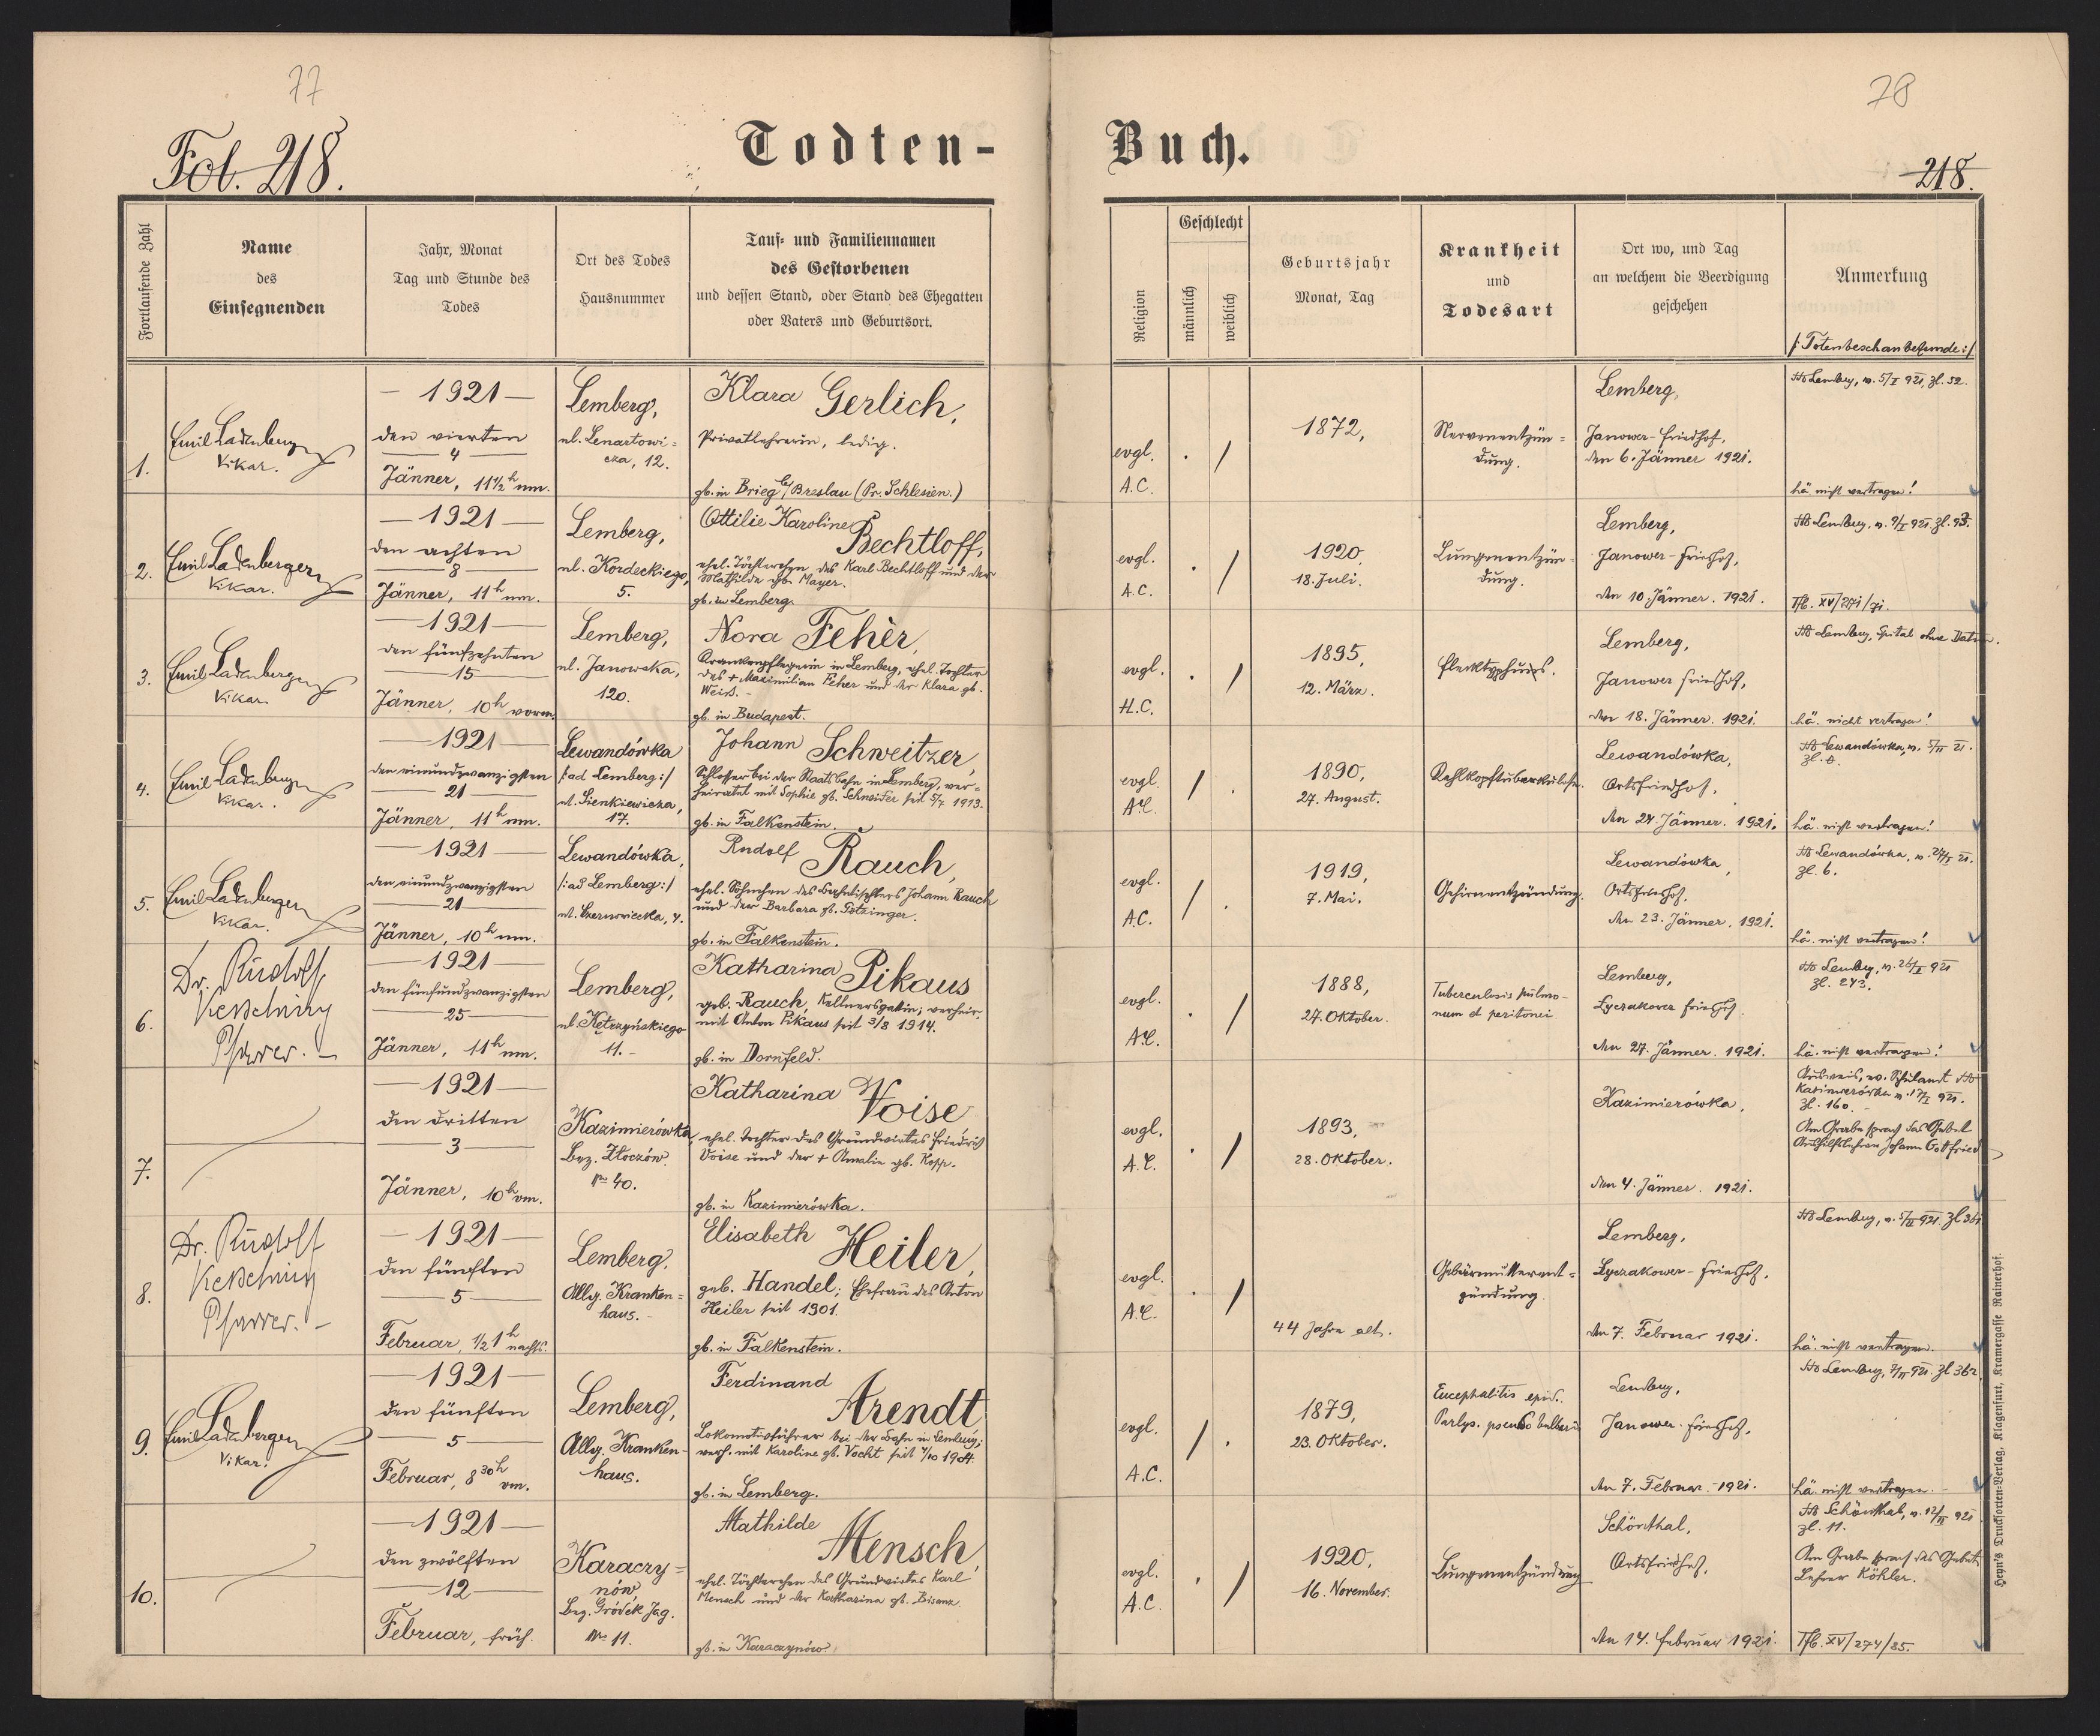 77
78
Fol. 218.
Todten-
Buch.
218.
Fortlaufende Zahl
Name
des
Einsegnenden
Jahr, Monat
Tag und Stunde des
Todes
Ort des Todes
Hausnummer
Tauf- und Familiennamen
des Gestorbenen
und dessen Stand, oder Stand des Ehegatten
oder Vaters und Geburtsort.
Religion
Geschlecht
männlich
weiblich
Geburtsjahr
Monat, Tag
Krankheit
und
Todesart
Ort wo, und Tag
an welchem die Beerdigung
geschehen
Anmerkung
/: Totenbeschaubefunde :/
1.
Emil Ladenberger
Vikar.
— 1921 —
den vierten
4
Jänner, 11 1/2 h nm.
Lemberg,
ul. Lenartowi-
cza, 12.
Klara Gerlich,
Privatlehrerin, ledig.
gb. in Brieg bei/Breslau (Pr. Schlesien.)
evgl.
A.C.
. /
1872,
Nervenentzün-
dung.
Lemberg,
Janower-Friedhof,
den 6. Jänner 1921.
Lemberg, v. 5/I 921, zl. 52.
hä nicht vertragen!
2.
Emil Ladenberger
Vikar.
— 1921 —
den achten
8
Jänner, 11 h nm.
Lemberg,
ul. Kordeckiego,
5.
Ottilie Karoline
Bechtloff,
ehel. Töchterchen des Karl Bechtloff und der
Mathilde gb. Mayer.
gb. in Lemberg.
evgl.
A.C.
. /
1920,
18. Juli.
Lungenentzün-
dung.
Lemberg,
Janower-Friedhof,
den 10. Jänner. 1921.
Lemberg, v. 9/I 921. zl. 93.
Tfb. XV/271/71.
3.
Emil Ladenberger
Vikar.
— 1921 —
den fünfzehnten
15
Jänner, 10 h vorm.
Lemberg,
ul. Janowska,
120.
Nora Fehèr,
Krankenpflegerin in Lemberg, ehel. Tochter
des + Maximilian Feher und der Klara gb.
Weiss. -
gb. in Budapest.
evgl.
H.C.
. /
1895,
12. März.
Flecktyphus.
Lemberg,
Janower Friedhof,
den 18. Jänner. 1921.
Lemberg, Spital ohne Datum.
hä. nicht vertragen!
4.
Emil Ladenberger
Vikar.
1921
den einundzwanzigsten
21
Jänner, 11 h nm.
Lewandówka
/: ad Lemberg :/
ul. Sienkiewicza,
17.
Johann Schweitzer,
Schlosser bei der Staatsbahn in Lemberg, ver-
heiratet mit Sophie gb. Schneider seit 5/7 1913.
gb. in Falkenstein.
evgl.
A.C.
/ .
1890,
27. August.
Kehlkopftuberkulose.
Lewandówka,
Ortsfriedhof,
den 24. Jänner. 1921.
Lewandówka, v. 5/II 21.
hä. nicht vertragen!
5.
Emil Ladenberger
Vikar.
— 1921 —
den einundzwanzigsten
21
Jänner, 10 h nm.
Lewandówka,
/: ad Lemberg :/
ul. Czarniecka, 4.
Rudolf Rauch,
ehel. Söhnchen des Bahntischlers Johann Rauch
und der Barbara gb. Götzinger.
gb. in Falkenstein.
evgl.
A.C.
/ .
1919,
7. Mai.
Gehirnentzündung.
Lewandówka,
Ortsfriedhof.
den 23. Jänner. 1921.
Lewandówka, v. 24/I 21.
zl. 6.
hä. nicht vertragen!
6.
Dr. Rudolf
Kesselring
Pfarrer. -
— 1921 —
den fünfundzwanzigsten
25
Jänner, 11 h nm.
Lemberg,
ul. Kętrzyńskiego
11. -
Katharina Pikaus
geb. Rauch, Kellnersgattin; verheir.
mit Anton Pikaus seit 3/8 1914.
gb. in Dornfeld.
evgl.
A.C.
. /
1888,
27. Oktober.
Tuberculosis pulmo-
num et peritonei
Lemberg,
Lyczakower Friedhof.
den 27. Jänner. 1921.
Lemberg, v. 26/I 921
zl. 272.
hä. nicht vertragen!
7.
— 1921 —
den dritten
3
Jänner, 10 h vm.
Kazimierówka,
Bez. Złoczów.
Nro 40.
Katharina Voise
ehel. Tochter des Grundwirtes Friedrich
Voise und der + Amalie gb. Kopp.
gb. in Kazimierówka.
evgl.
A.C.
. /
1893,
28. Oktober.
Kazimierówka,
den 4. Jänner. 1921.
Ausweis, v. Schulamt
Kazimierówka v. 17/I 921.
zl. 160. -
Am Grabe sprach das Gebet
Aushilfslehrer Johann Gottfried
8.
Dr. Rudolf
Kesselring
Pfarrer. -
— 1921 —
den fünften
5
Februar, 1/2 1 h nachts.
Lemberg.
Allg. Kranken-
haus. -
Elisabeth Heiler,
geb. Handel; Ehefrau des Anton
Heiler seit 1901.
gb. in Falkenstein.
evgl.
A.C.
. /
44 Jahre alt.
Gebärmutterent-
zündung.
Lemberg,
Lyczakower-Friedhof.
den 7. Februar 1921.
Lemberg, v. 5/II 921. zl 361
hä. nicht vertragen.
9.
Emil Ladenberger
Vikar.
— 1921 —
den fünften
5
Februar, 8 30 h vm.
Lemberg,
Allg. Kranken-
haus.
Ferdinand
Arendt
Lokomotivführer bei der Bahn in Lemberg;
verh. mit Karoline gb. Vocht seit 4/10 1904.
gb. in Lemberg.
evgl.
A.C.
/ .
1879,
23. Oktober.
Encephalitis epid.
Parlys. pseudo bulbaris
Lemberg,
Janower-Friedhof,
den 7. Februar. 1921.
Lemberg, 7/II 921. zl 362
hä. nicht vertragen. -
10.
— 1921 —
den zwölften
12
Februar, früh.
Karaczy-
nów
Bez. Gródek Jag.
Nro 11.
Mathilde
Mensch,
ehel. Töchterchen des Grundwirtes Karl
Mensch und der Katharina gb. Bisanz.
gb. in Karaczynów.
evgl.
A.C.
. /
1920,
16. November.
Lungenentzündung
Schönthal,
Ortsfriedhof,
den 14. Februar 1921.
Schönthal, v. 12/II 921
zl. 11.
Am Grabe sprach das Gebet
Lehrer Köhler.
Tfb. XV/274/85.
Heyn's Drucksorten-Verlag, Klagenfurt, Kramergasse Rainerhof.